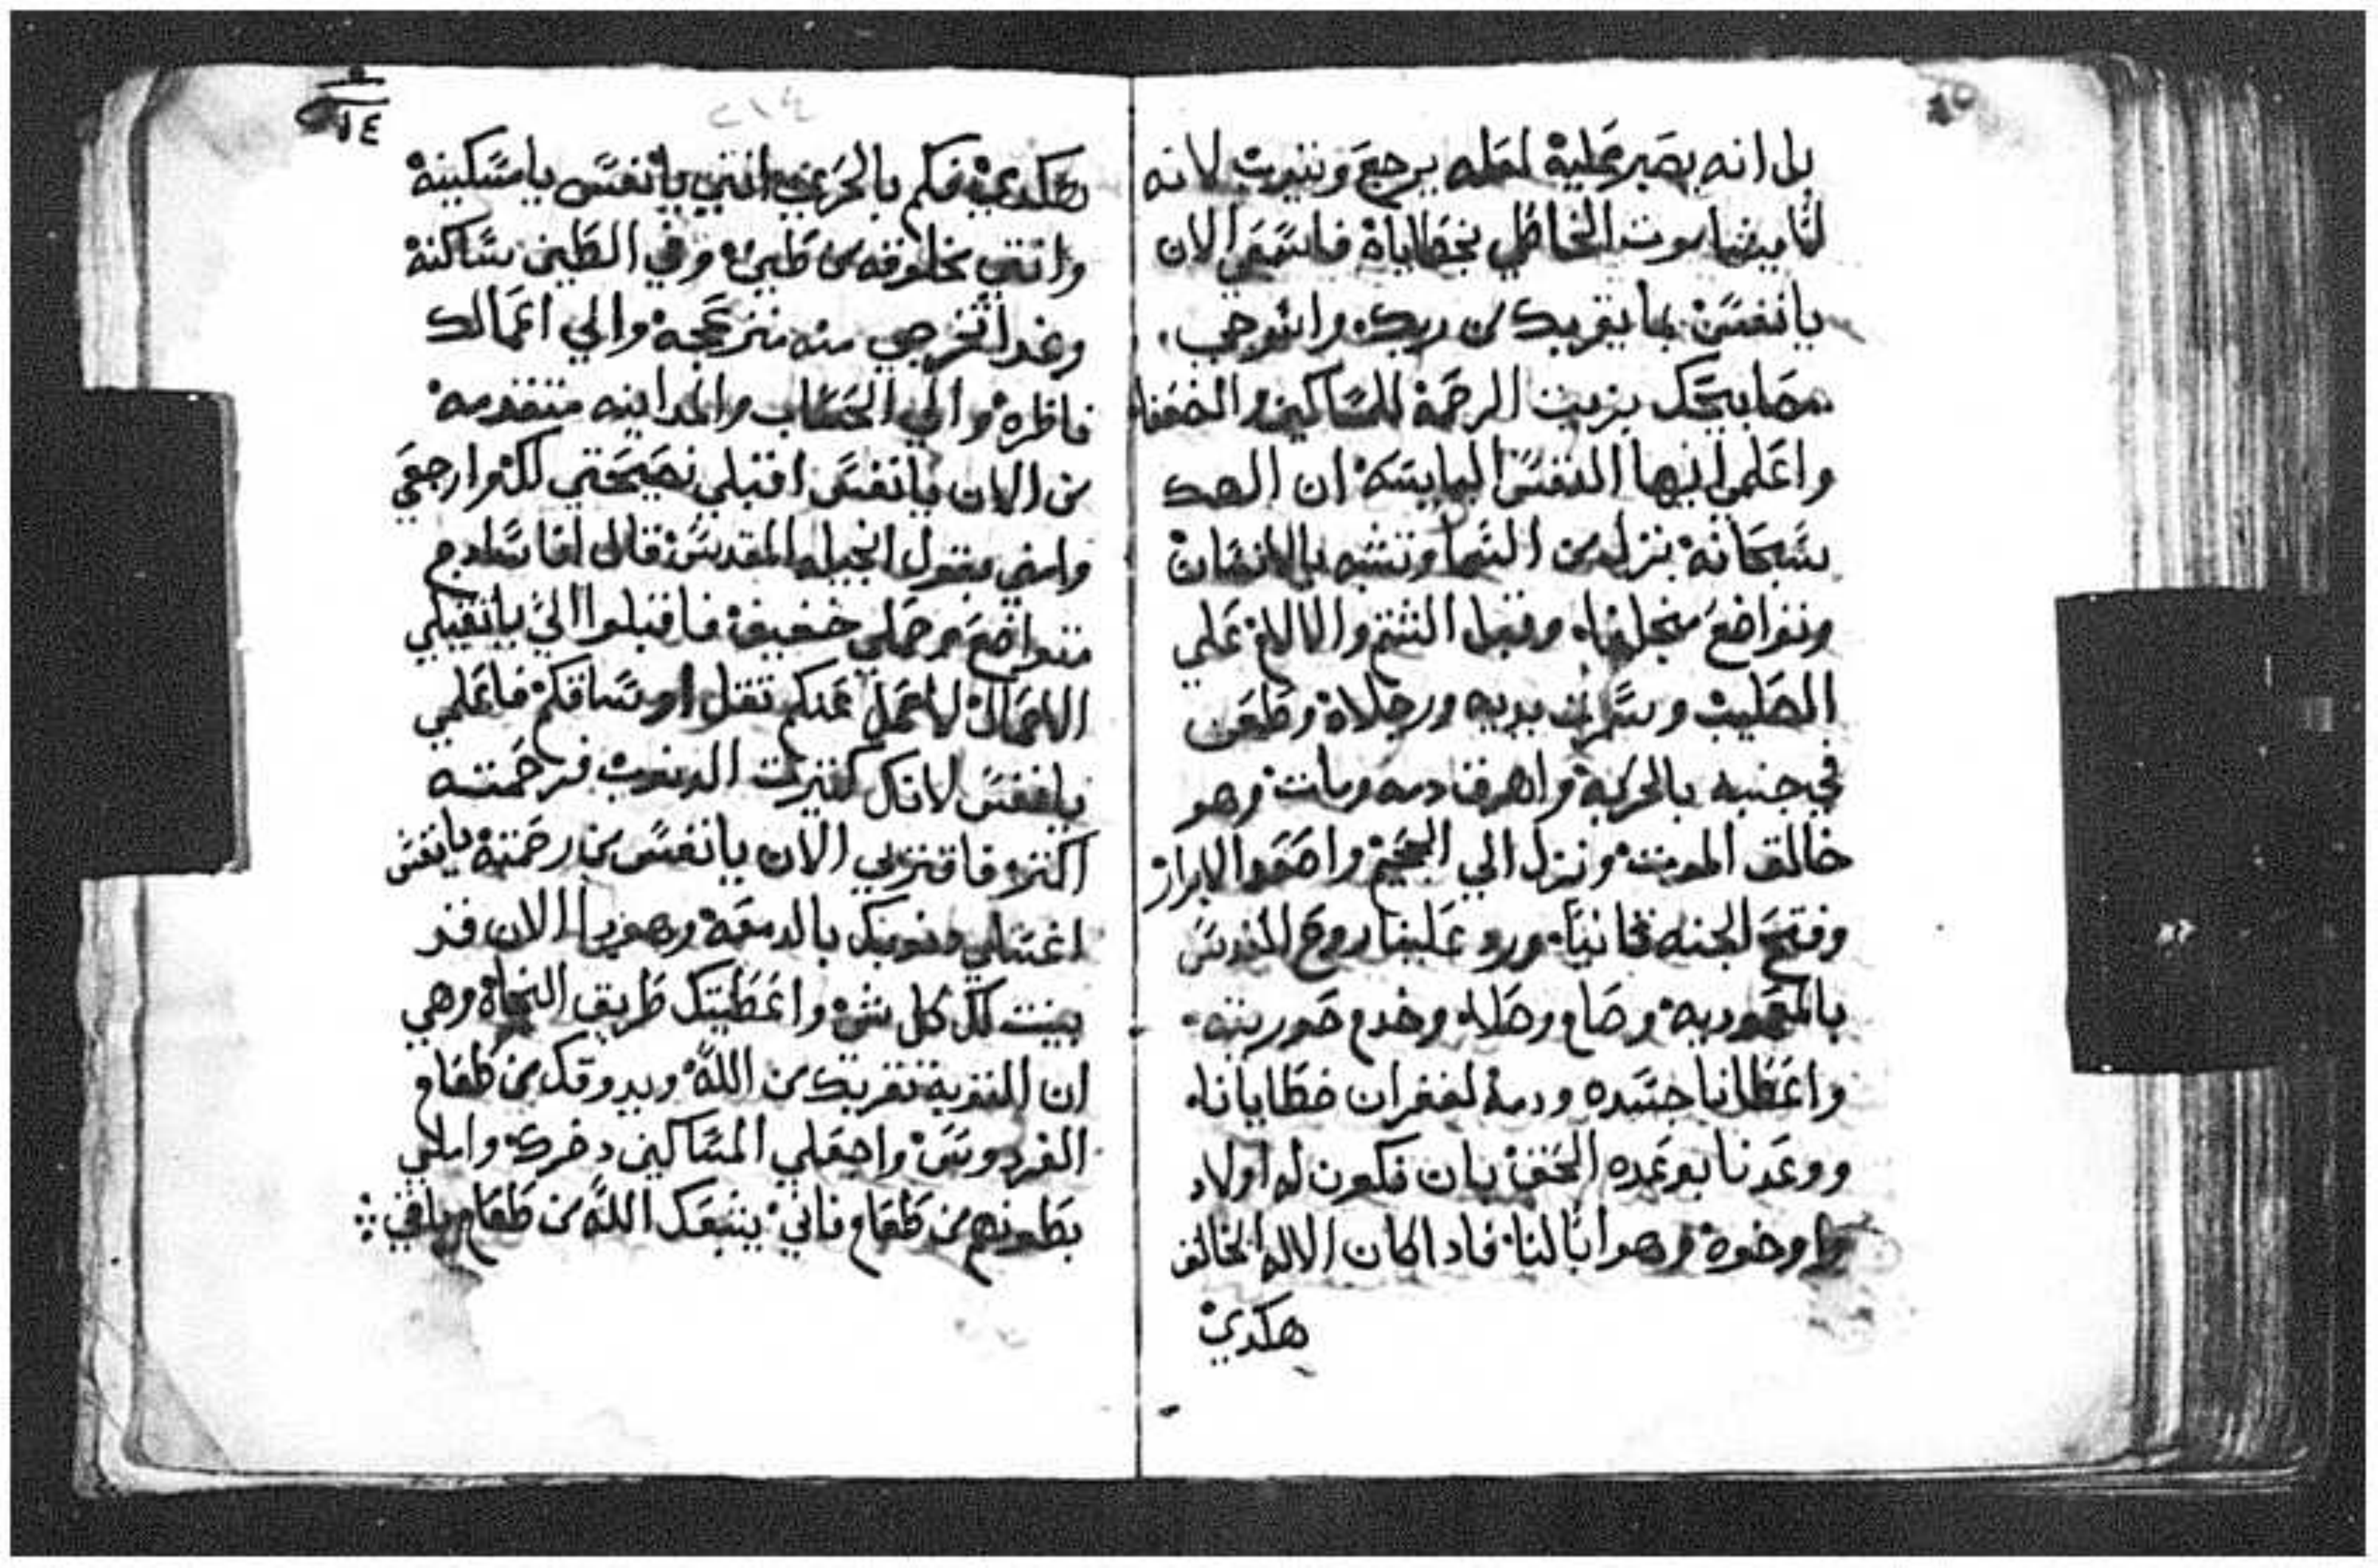 بل انه يصبر عليه لعله يرجع ويتوب لانه
لا يشا موت الخاطي بخطاياه فاسمعي الان
يانفس بما يقربك من ربك واسرجي
مصابيحك بزيت الرحمة للمساكين والضعفا
واعلمي ايها النفس اليابسه ان الهك
سبحانه نزل من السما وتشبه بالانسان
وتواضع من اجلنا وقبل الشتم والالام علي
الصليب وسمرت يديه ورجلاه وطعن
في جنبه بالحربه واهرق دمه ومات وهو
خالق الموت ونزل الي الجحيم واصعد الابرار
وفتح الجنه ثانيا ورد علينا روح القدس
بالمعموديه وصام وصلا وخدم صورينه
واعطانا جسده ودمه لغفران خطايانا
ووعدنا بوعده الحق بان نكون له اولاد
واخوة وهو ابا لنا فاد اكان الاله الخالق
هكدي
٢١٤
٢١٤
هكدي فكم بالحري انتي يانفس يامسكينه
وانتي مخلوقه من طين وفي الطين ساكنة
وغدا تخرجي منه منزعجه والي اعمالك
ناظره والي الحساب والمداينه متقدمه
من الان يانفس اقبلي نصيحتي لك وارجعي
وامني بقول انجيله المقدس قال انا سادج
متواضع وحملي خفيف فاقبلوا الي ياتقيلي
الاحمال لاحمل عنكم تقل اوساقكم فاعلمي
يانفس لانك كتيرت الدنوب فرحمته
اكتر فاقتربي الان يانفس من رحمته يانفس
اغسلي دنوبك بالدمعه وهودا الان قد
بينت لك كل شي واعطيتك طريق النجاة وهي
ان التوبة تقربك من الله ويدوقك من طعام
الفردوس واجعلي المساكين دخرك واملي
بطونهم من طعام فاني يشبعك الله من طعام باقي